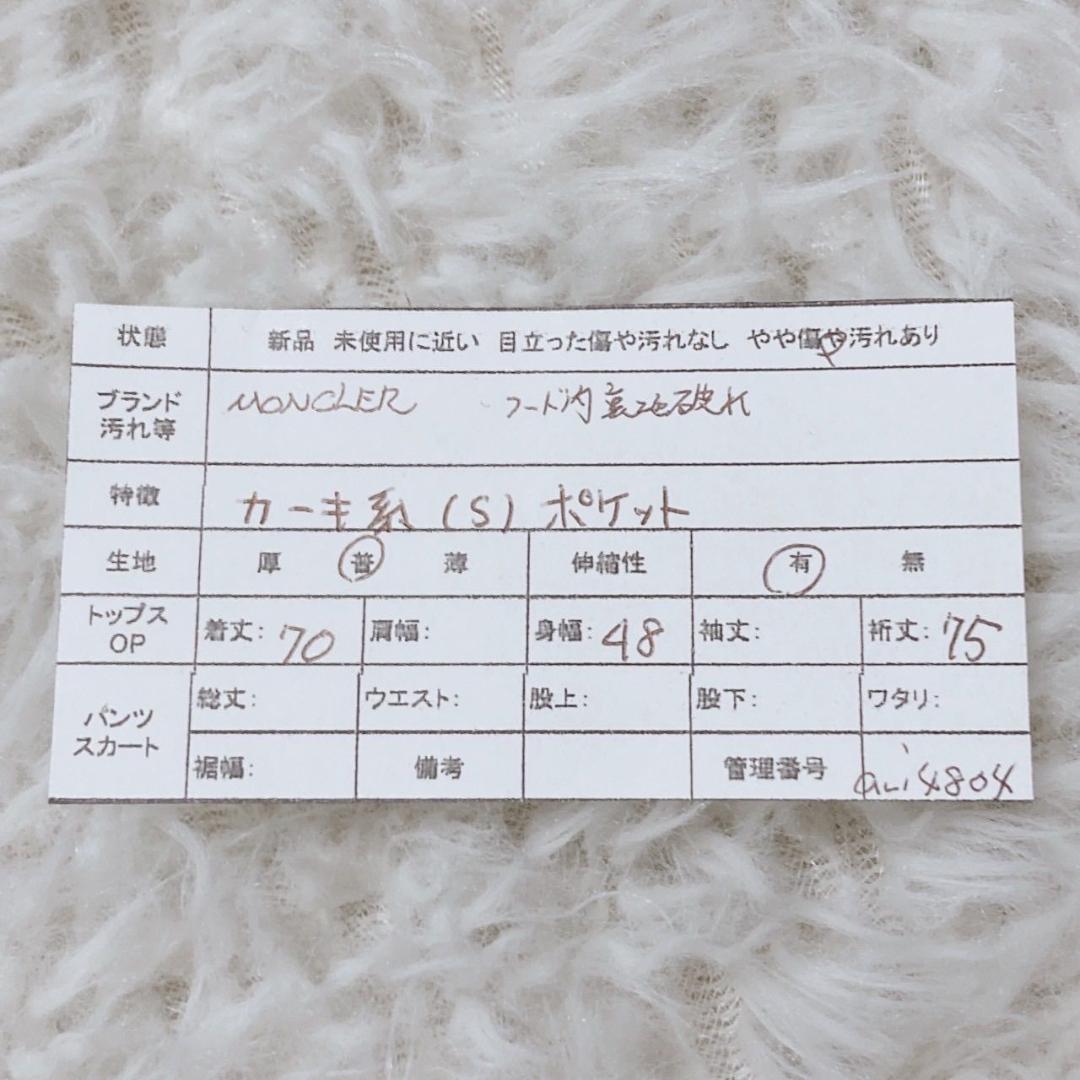 状態 新品 未使用に近い 目立った傷や汚れなし やや傷や汚れあり
ブランド
汚れ等 MONCLER フード内 破れ
特徴 カーキ系 (S) ポケット
生地 厚 普 薄 伸縮性 有 無
トップス
OP 着丈: 70 肩幅: 身幅: 48 袖丈: 裄丈: 75
パンツ
スカート 総丈: ウエスト: 股上: 股下: ワタリ:
裾幅: 備考 管理番号 aui4804